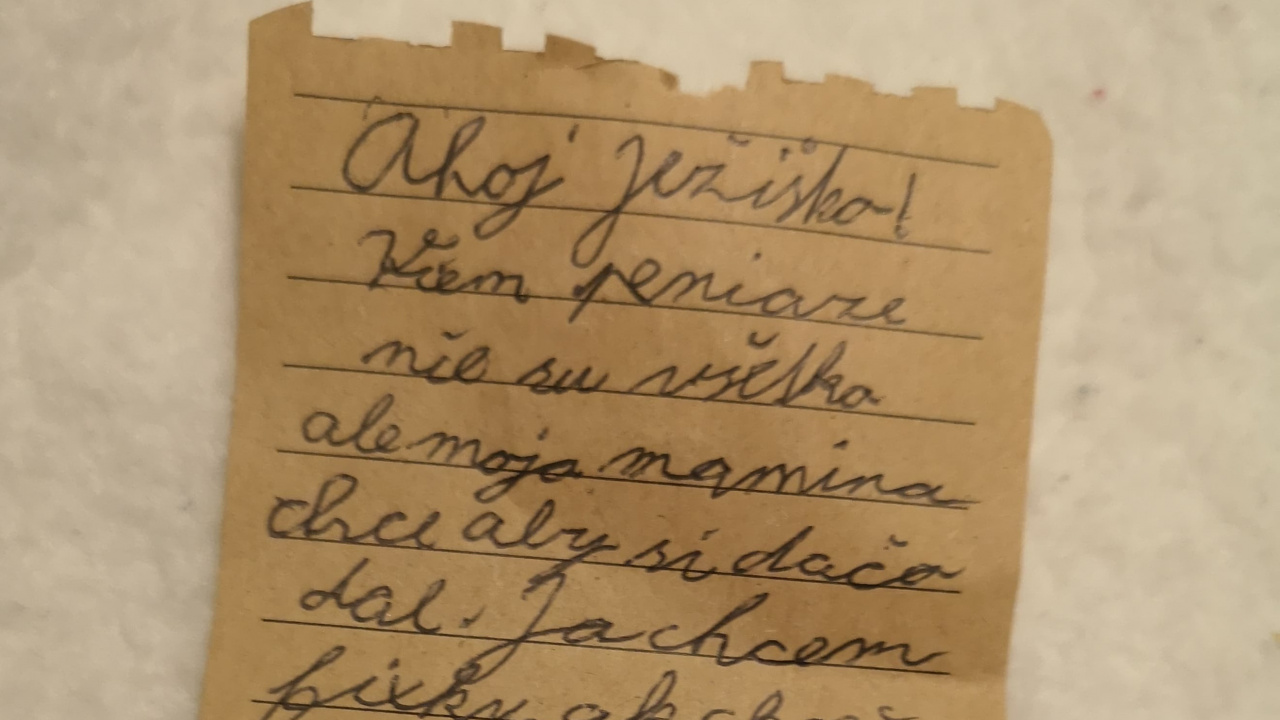 Ahoj Ježiško!
Viem peniaze
nie su všetko
ale moja mamina
chce aby si dačo
dal. Ja chcem
fixky ak chceš